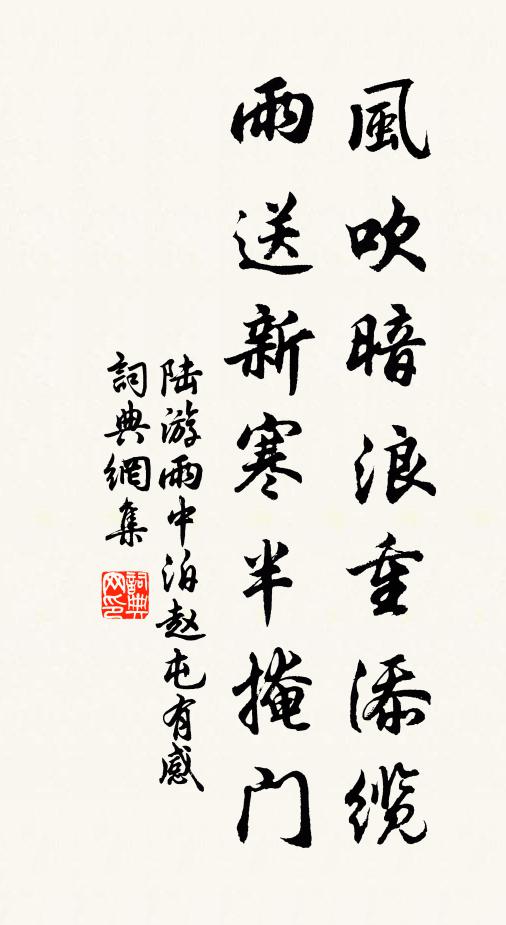 風吹暗浪重添缆
雨送新寒半掩门
陆游雨中泊赵屯有感
詞典網集
詞典網印